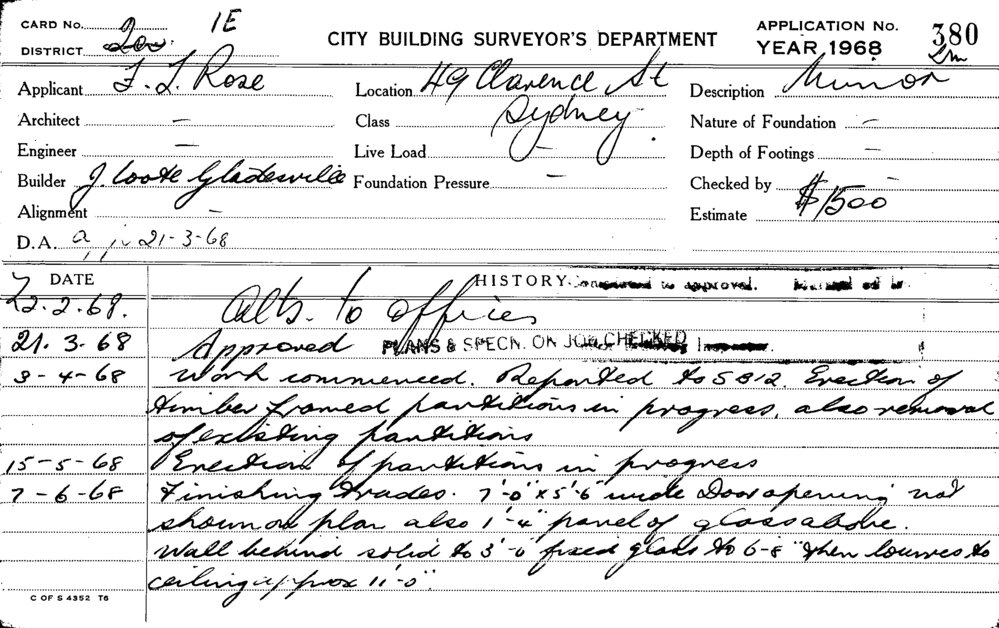 CARD No. 1E
DISTRICT 200
CITY BUILDING SURVEYOR'S DEPARTMENT
APPLICATION No. 380
YEAR, 1968 2m
Applicant F. L. Rose
Location 49 Clarence St
Sydney
Description Minor
Architect —
Class
Nature of Foundation —
Engineer —
Live Load —
Depth of Footings —
Builder J. Coote Gladesville
Foundation Pressure —
Checked by —
Alignment —
Estimate $1500
D.A. 21-3-68
DATE HISTORY
22.2.68. Alts. to offices
21.3-68 Approved PLANS & SPECN. ON JOB CHECKED
3-4-68 Work commenced. Reported to S812. Erection of
timber framed partitions in progress, also removal
of existing partitions
15-5-68 Erection of partitions in progress
7-6-68 Finishing trades. 7'-0" x 5'-6" wide Door opening not
shown on plan also 1'-4" panel of glass above.
Wall behind solid to 3'-0" fixed glass to 6-8" then louvres to
ceiling approx 11'-0"
C OF S 4352 T6